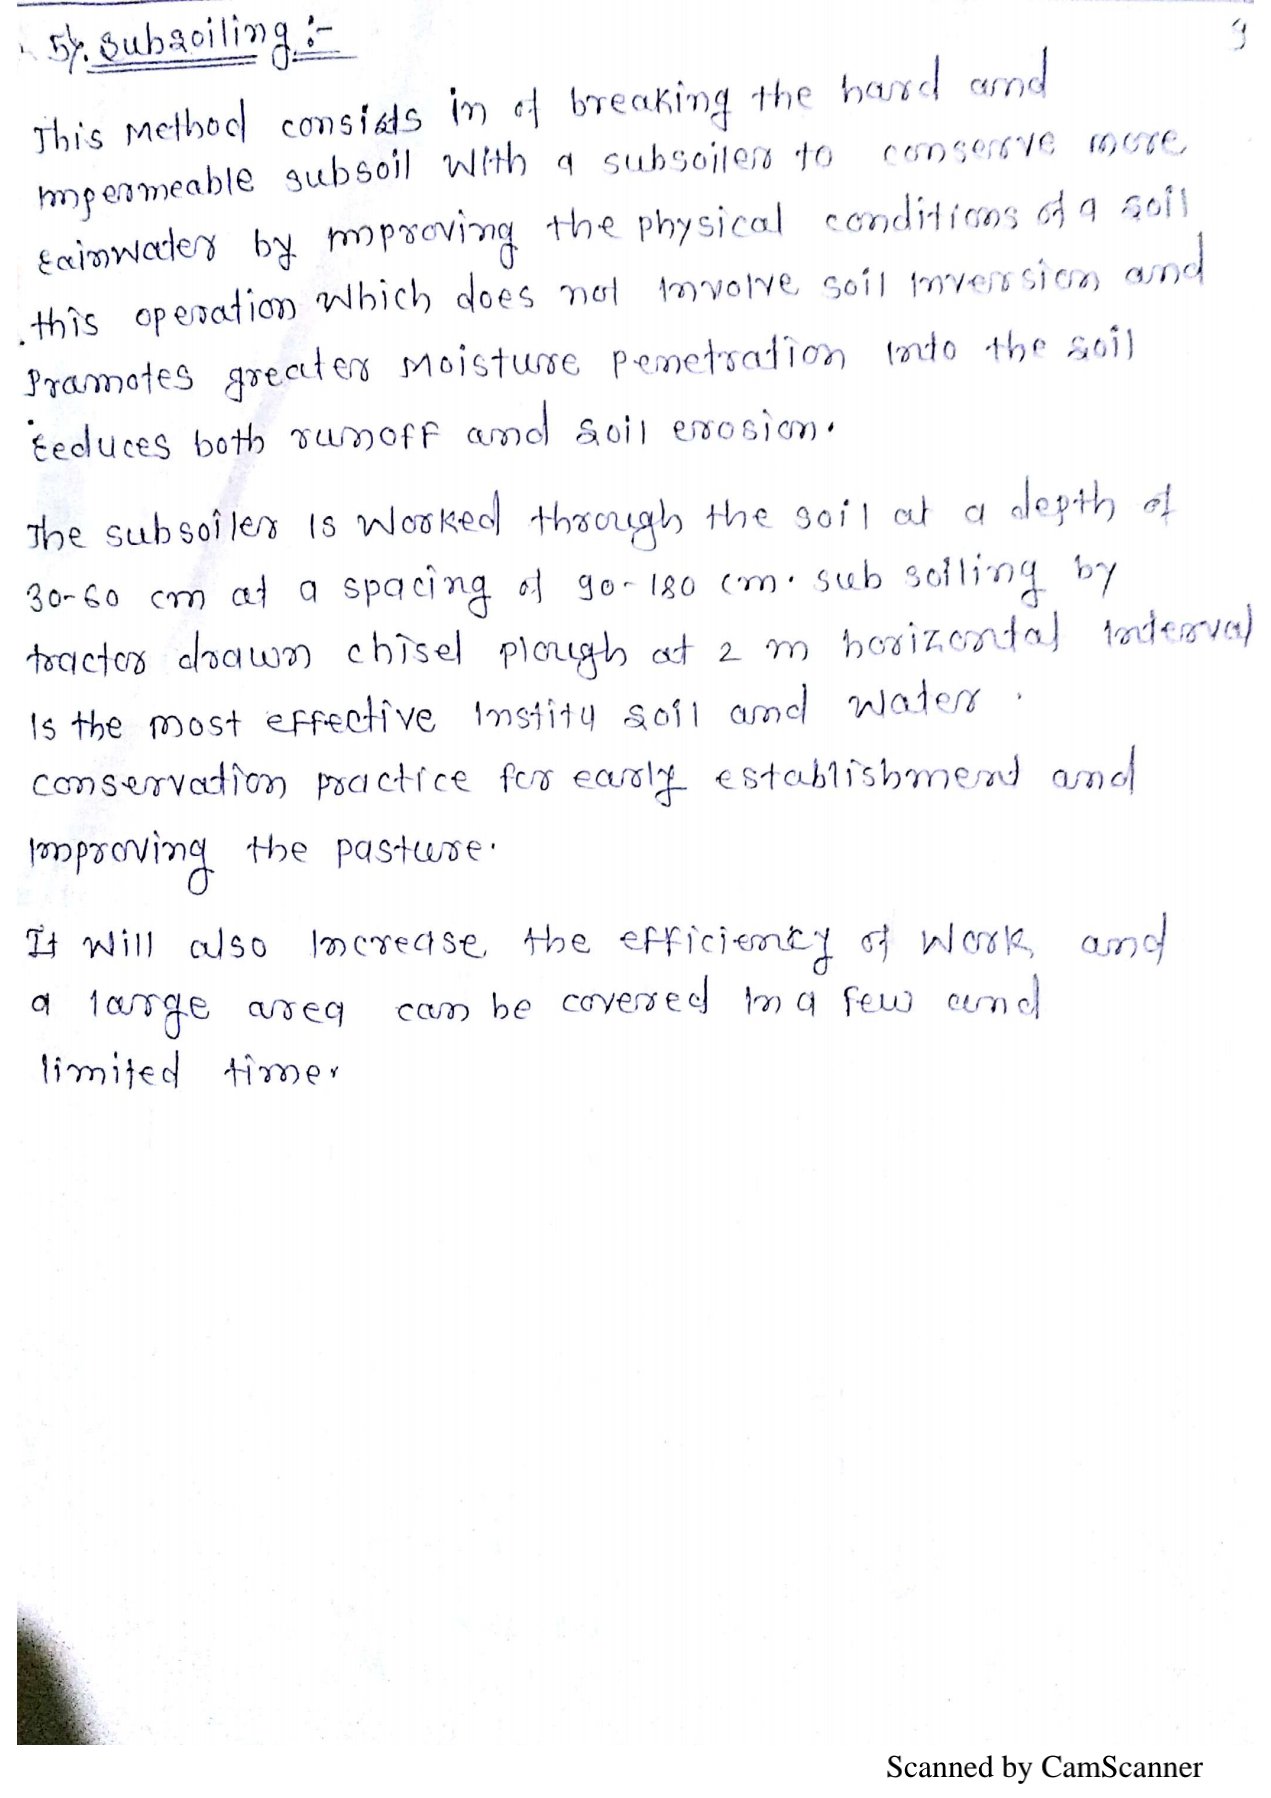 5). Subsoiling :-
This Method consists in of breaking the hard and
impermeable subsoil with a subsoiler to conserve more
rainwater by improving the physical conditions of a soil
this operation which does not involve soil inversion and
Promotes greater Moisture penetration into the soil
reduces both runoff and soil erosion.
The subsoiler is worked through the soil at a depth of
30-60 cm at a spacing of 90-180 cm. sub soiling by
tractor drawn chisel plough at 2 m horizontal interval
Is the most effective Institu soil and water.
conservation practice for early establishment and
improving the pasture.
It will also Increase the efficiency of work and
a large area can be covered in a few and
limited time.
Scanned by CamScanner